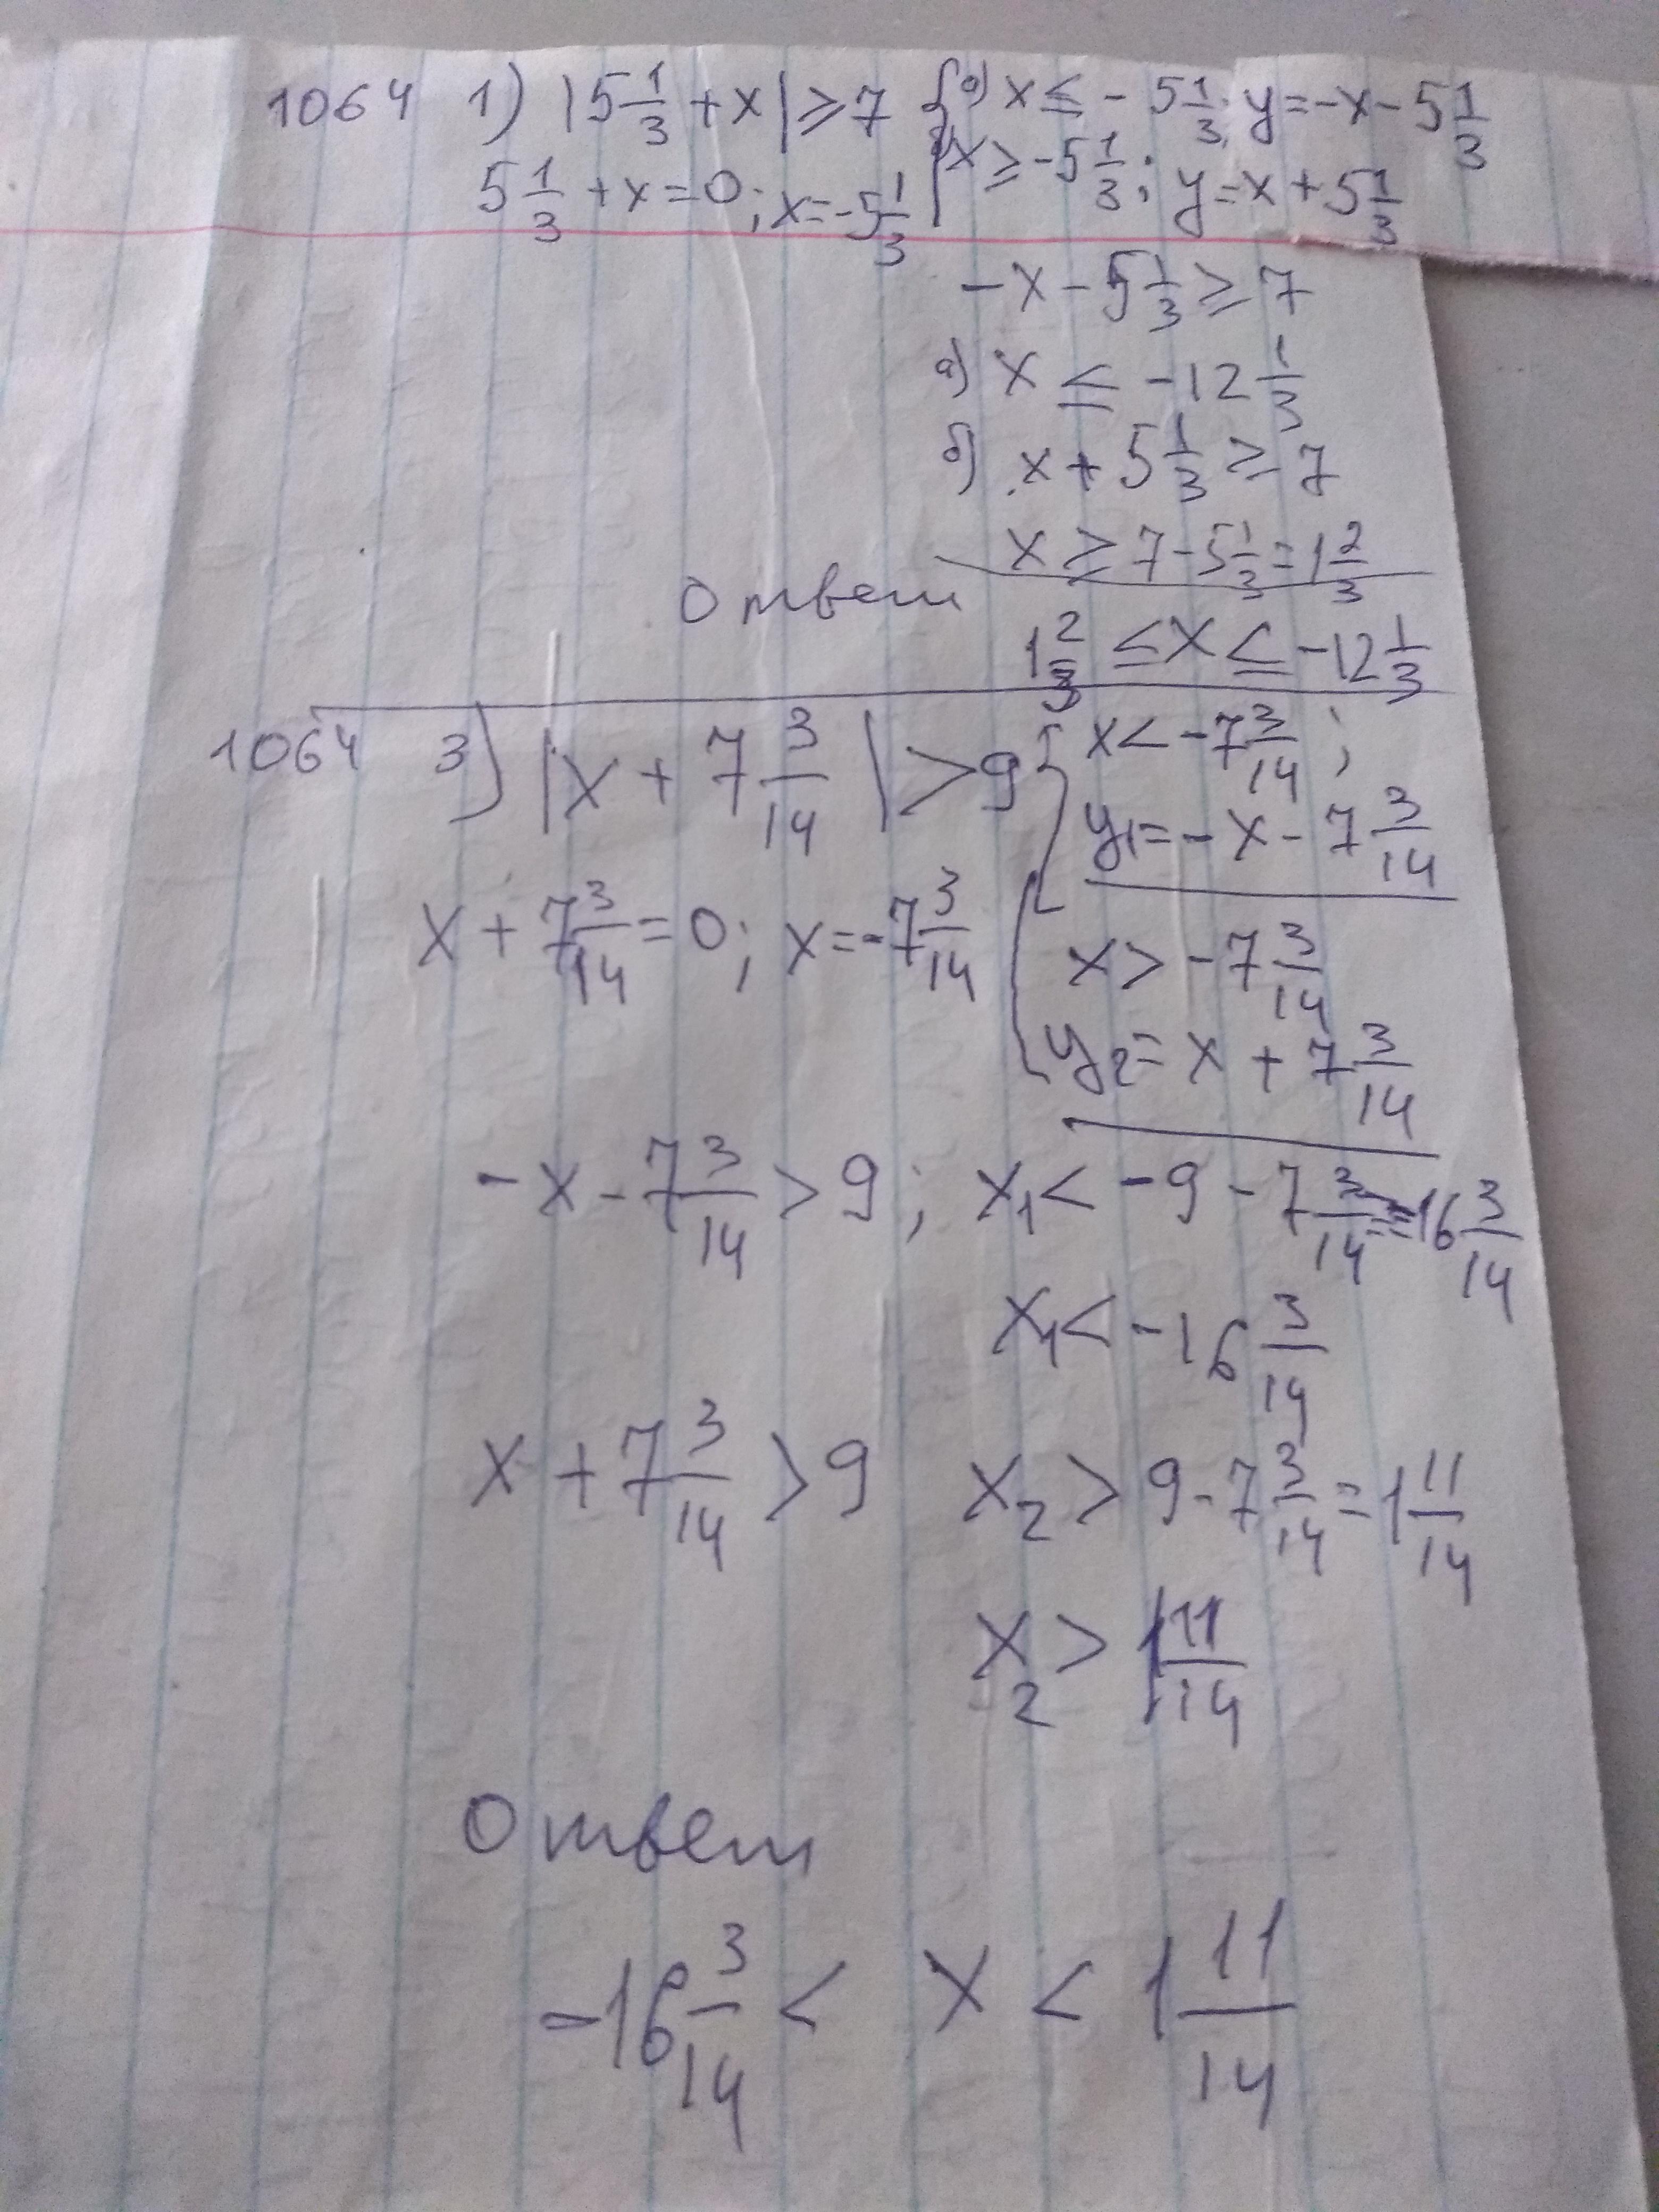 1064 1) |5 1/3 + x| ≥ 7 { а) x ≤ - 5 1/3; y = -x - 5 1/3
5 1/3 + x = 0; x = -5 1/3 x ≥ -5 1/3; y = x + 5 1/3
-x - 5 1/3 ≥ 7
а) x ≤ -12 1/3
б) x + 5 1/3 ≥ 7
x ≥ 7 - 5 1/3 = 1 2/3
Ответ
1 2/3 ≤ x ≤ -12 1/3
1064 3) |x + 7 3/14| > 9 { x < -7 3/14;
y1 = -x - 7 3/14
x + 7 3/14 = 0; x = -7 3/14
x > -7 3/14
y2 = x + 7 3/14
-x - 7 3/14 > 9; x1 < -9 - 7 3/14 = -16 3/14
x1 < -16 3/14
x + 7 3/14 > 9 x2 > 9 - 7 3/14 = 1 11/14
x2 > 1 11/14
Ответ
-16 3/14 < x < 1 11/14